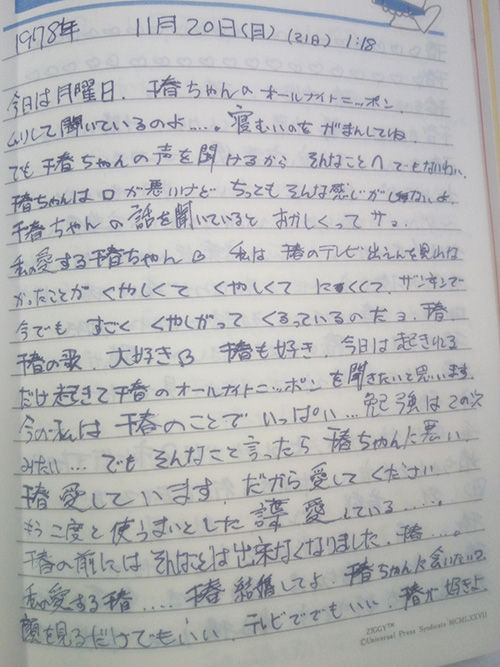 1978年 11月20日(月) (21日) 1:18
今日は月曜日、千春ちゃんのオールナイトニッポン、
ムリして聞いているのよ……。寝むいのをがまんしてね
でも千春ちゃんの声を聞けるから そんなことヘでもないわい
千春ちゃんは口が悪いけど ちっともそんな感じがしないよ、
千春ちゃんの話を聞いていると おかしくってサョ.
私の愛する千春ちゃん 私は千春のテレビ出えんを見れな
かったことが くやしくて くやしくて にくくて、ザンネンで
今でも すごく くやしがって くるっているのだョ、千春
千春の歌、大好き 千春も好き、今日は起きれる
だけ起きて千春のオールナイトニッポンを聞きたいと思います。
今の私は千春のことでいっぱい… 勉強は二の次
みたい… でもそんなこと言ったら千春ちゃんに悪い
千春愛しています、だから愛してください
もう二度と使うまいとした 愛している……。
千春の前には そんなことは出来なくなりました、千春…。
私の愛する千春…… 千春 結婚してよ、千春ちゃんに会いたい
顔を見るだけでもいい、テレビででもいい、千春が好きよ
ZIGGY™
©Universal Press Syndicate MCMLXXVII